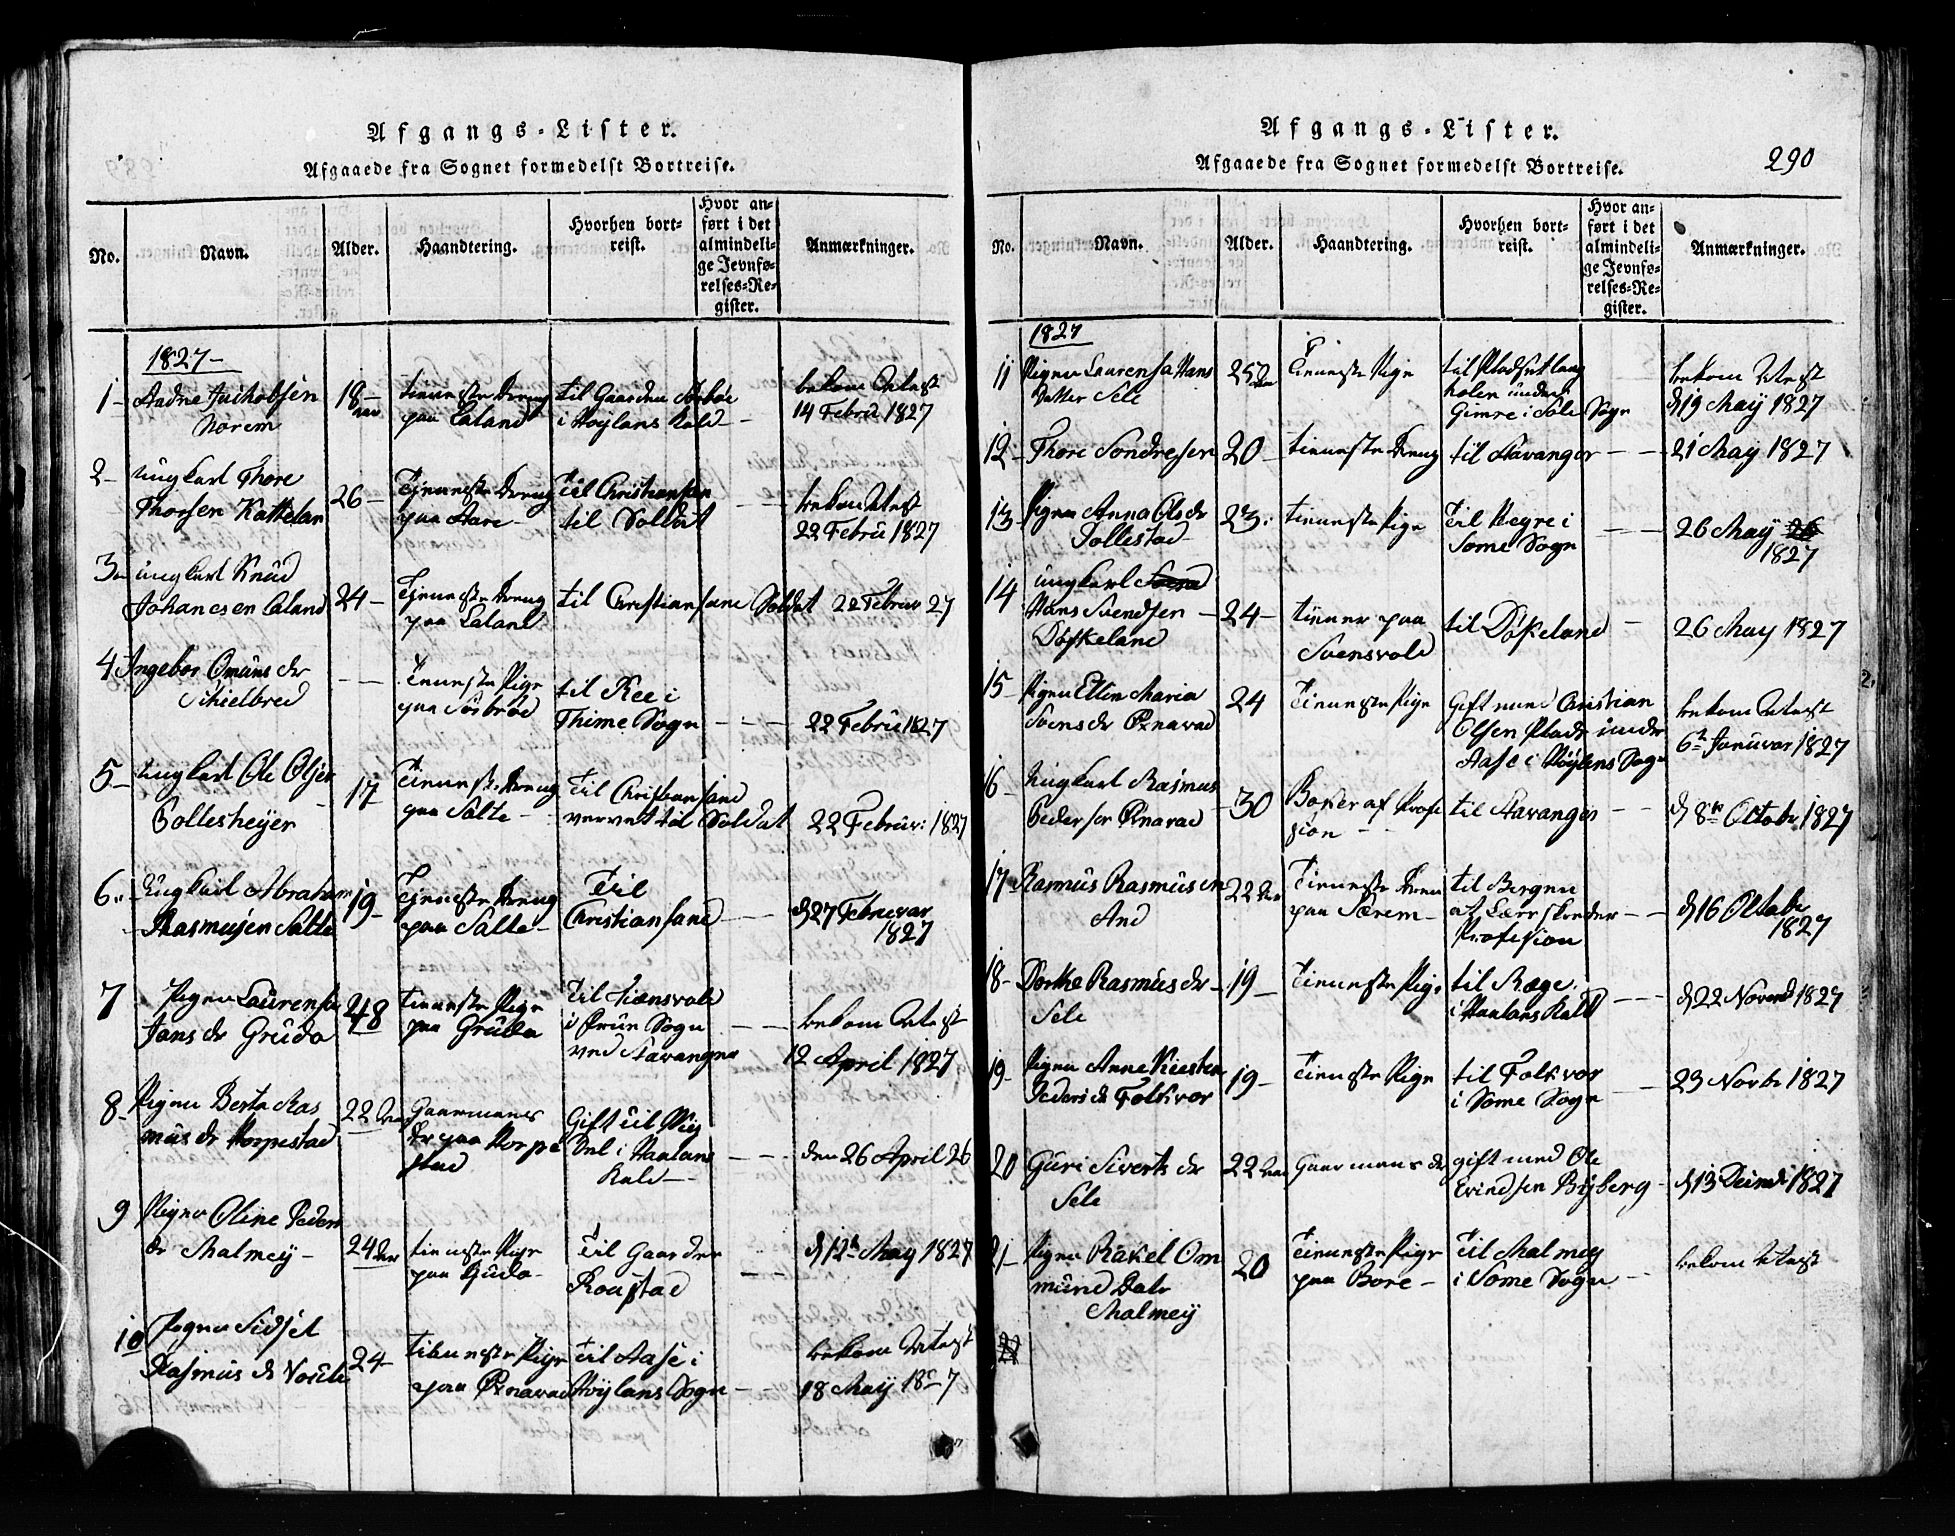 Afgangs-Lister.
Afgaaede fra Sognet formedelst Bortreise.
No.
Navn.
Alder.
Haandtering.
Hvorhen bort-
reist.
Hvor an-
ført i det
almindeli-
ge Jevnfø-
relses-Re-
gister.
Anmærkninger.
1827 –
1–
Aadne Jachobsen
Norem
18–
aar
tieneste Dreng
paa Laland
til Gaarden
i Høylans Kald –
bekom Attest
14 Febru 1827
2–
ungkarl Thore
Thorsen Kattelan
26 –
Tjeneste Dreng
paa Aare –
Til Christiansan
til Soldat
bekom Attest
22 Febru 1827
3–
ungkarl Knud
Johanesen Laland
24–
Tjeneste Dreng
paa Laland
til Christiansane Soldat
22 Februr 27
4
Ingebor Omuns dr
Schielbred
Teneste Pige
paa
til Ree i
Thime Sogn – – –
22 Febru 1827
5–
ungkarl Ole Olsen
Bollesheyer
17
Tieneste Dreng
paa Salte –
Til Christiansand
vervet til Soldat
22 Februr: 1827
6
Ungkarl Abraham
Rasmusen Salte
19–
Tjeneste Dreng
paa Salte –
Til
Christiansand – –
d 27 Februar
1827
7
Pigen Laurensa
Jans dr Gruda
48
tieneste Pige
paa Gruda
Til
i Sogn – –
ved Stavanger
bekom Attest
12 April 1827
8–
Pigen Berta Ras
mus dr Horpestad
22 Aar
Gaarmanes
Dr paa Horpe
stad
Gift til
i Haalans
Kald – –
den 26 April 26
9
Pigen Oline Peders
dr Malmey –
24 Aar
tieneste Pige
paa Guda –
Til Gaarden
d 12t May 1827
10
Pigen Sidsel
Rasmus dr
24–
tieneste Pige
paa
Til Aase i
Høylans Sogn –
bekom Attest
18 May 1827
Afgangs-Lister.
Afgaaede fra Sognet formedelst Bortreise.
290
No.
Navn.
Alder.
Haandtering.
Hvorhen bort-
reist.
Hvor an-
ført i det
almindeli-
ge Jevnfø-
relses-Re-
gister.
Anmærkninger.
1827
11
Pigen Laurensa Hans
Datter Sele
25 Aar
Tieneste Pige
til
holen under
Gimre i Sole Sogn
bekom Attest
d 19 May 1827
12–
Thore Sondresen
20 –
tieneste Dreng
til Stavanger – –
21 May 1827
13–
Pigen Anna Ols dr
23
tieneste Pige
Til Hegre i
Some Sogn
26 May 26
1827
14
ungkarl
Hans Svendsen –
24–
tiener paa
Svensvold
til –
26 May 1827
15
Pigen Ellen Maria
Svens dr
24
Tieneste Pige
Gift med Christian
Olsen Plads under
Aase i Høylans Sogn
bekom Attest
6t Januar 1827
16–
Ungkarl Rasmus
Pederson
30
Bøker af Profe
sion – –
til Stavanger – –
d 8de Octobr 1827
17
Rasmus Rasmusen
And
22 Aar
Tieneste Dreng
paa –
til Bergen
at Lære
Profesion
d 16 Octobr
1827
18–
Dorthe Rasmus dr –
Sele
19 –
Tieneste Pige
til Ræge
i Haalans Kald
d 22 Novemb 1827
19–
Pigen Anne Kirsten
Peders dr Folkvor
19 –
Tieneste Pige
til Folkvor
i Some Sogn –
23 Novbr 1827
20
Guri Siverts dr
Sele
22 Aar
Gaarmans dr
gift med Ole
Evindsen Byberg
d 13 Decmb 1827
21–
Pigen Rakel Om
mund Datr
Malmey
20
Tieneste Pige
paa Bore –
Til Malmey
i Some Sogn –
bekom Attest
22